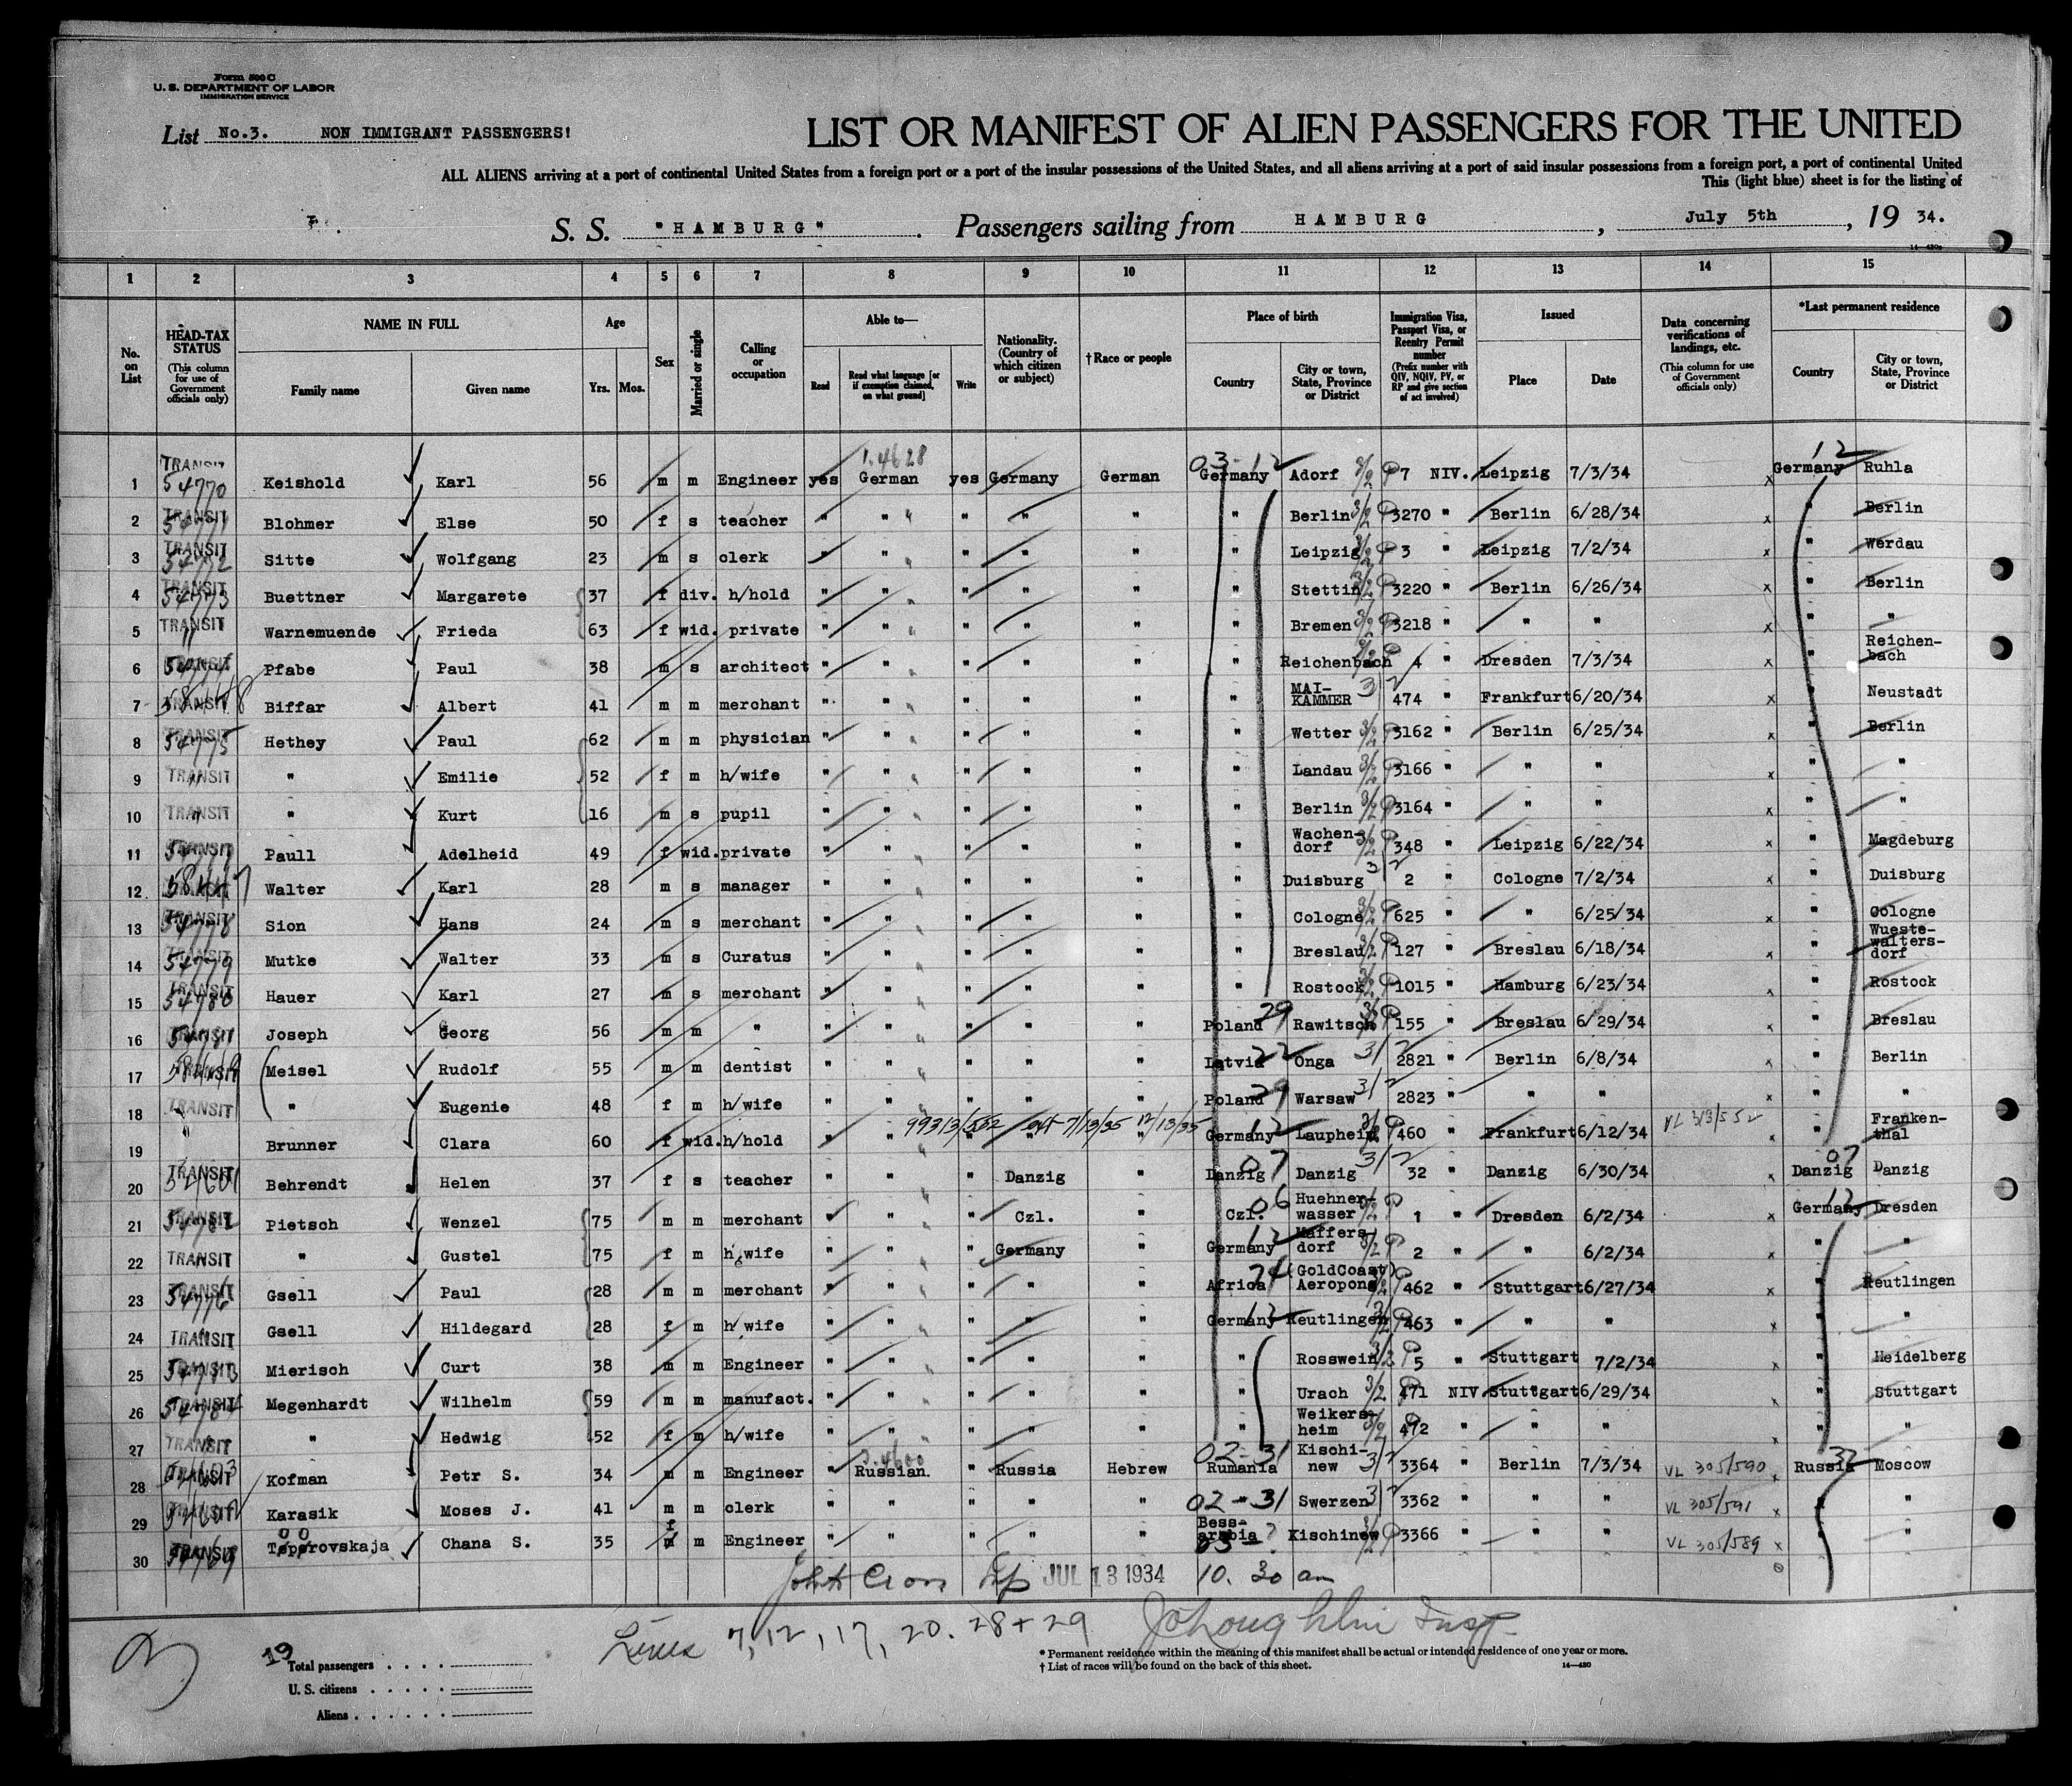 Form 500 C
U. S. DEPARTMENT OF LABOR
IMMIGRATION SERVICE
List No.3. NON IMMIGRANT PASSENGERS!
LIST OR MANIFEST OF ALIEN PASSENGERS FOR THE UNITED
ALL ALIENS arriving at a port of continental United States from a foreign port or a port of the insular possessions of the United States, and all aliens arriving at a port of said insular possessions from a foreign port, a port of continental United
This (light blue) sheet is for the listing of
S. S. "HAMBURG" . Passengers sailing from HAMBURG , July 5th , 19 34.
1 2 3 4 5 6 7 8 9 10 11 12 13 14 15
No. on List
HEAD-TAX STATUS (This column for use of Government officials only)
NAME IN FULL Family name Given name
Age Yrs. Mos.
Sex
Married or single
Calling or occupation
Able to— Read Read what language [or if exemption claimed, on what ground] Write
Nationality. (Country of which citizen or subject)
†Race or people
Place of birth Country City or town, State, Province or District
Immigration Visa, Passport Visa, or Reentry Permit number (Prefix number with QIV, NQIV, PV, or RP and give section of act involved)
Issued Place Date
Data concerning verifications of landings, etc. (This column for use of Government officials only)
*Last permanent residence Country City or town, State, Province or District
1 TRANSIT 54770 Keishold Karl 56 m m Engineer yes German yes Germany German Germany Adorf 7 NIV. Leipzig 7/3/34 x Germany Ruhla
2 TRANSIT 54771 Blohmer Else 50 f s teacher " " " " " " " Berlin 3270 " Berlin 6/28/34 x " Berlin
3 TRANSIT 54772 Sitte Wolfgang 23 m s clerk " " " " " " " Leipzig 3 " Leipzig 7/2/34 x " Werdau
4 TRANSIT 54773 Buettner Margarete 37 f div. h/hold " " " " " " " Stettin 3220 " Berlin 6/26/34 x " Berlin
5 TRANSIT " Warnemuende Frieda 63 f wid. private " " " " " " " Bremen 3218 " " " x " "
6 TRANSIT 54774 Pfabe Paul 38 m s architect " " " " " " " Reichenbach 4 " Dresden 7/3/34 x " Reichen-bach
7 TRANSIT 58448 Biffar Albert 41 m m merchant " " " " " " " MAI-KAMMER 474 " Frankfurt 6/20/34 x " Neustadt
8 TRANSIT 54775 Hethey Paul 62 m m physician " " " " " " " Wetter 3162 " Berlin 6/25/34 x " Berlin
9 TRANSIT " " Emilie 52 f m h/wife " " " " " " " Landau 3166 " " " x " "
10 TRANSIT " " Kurt 16 m s pupil " " " " " " " Berlin 3164 " " " x " "
11 TRANSIT 54777 Paull Adelheid 49 f wid. private " " " " " " " Wachen-dorf 348 " Leipzig 6/22/34 x " Magdeburg
12 58447 Walter Karl 28 m s manager " " " " " " " Duisburg 2 " Cologne 7/2/34 x " Duisburg
13 TRANSIT 54778 Sion Hans 24 m s merchant " " " " " " " Cologne 625 " " 6/25/34 x " Cologne
14 TRANSIT 54779 Mutke Walter 33 m s Curatus " " " " " " " Breslau 127 " Breslau 6/18/34 x " Wueste-walters-dorf
15 TRANSIT 54780 Hauer Karl 27 m s merchant " " " " " " " Rostock 1015 " Hamburg 6/23/34 x " Rostock
16 TRANSIT 54781 Joseph Georg 56 m m " " " " " " " Poland 29 Rawitsch 155 " Breslau 6/29/34 x " Breslau
17 TRANSIT 58449 Meisel Rudolf 55 m m dentist " " " " " " Latvia 22 Onga 2821 " Berlin 6/8/34 x " Berlin
18 TRANSIT " " Eugenie 48 f m h/wife " " " " " " Poland 29 Warsaw 2823 " " " x " "
19 Brunner Clara 60 f wid. h/hold " " " 99313/552 ext 7/13/35 12/13/35 " Germany 12 Laupheim 460 " Frankfurt 6/12/34 VL 313/552 x " Franken-thal
20 TRANSIT 54601 Behrendt Helen 37 f s teacher " " " Danzig " Danzig 07 Danzig 32 " Danzig 6/30/34 x Danzig 07 Danzig
21 TRANSIT 54782 Pietsch Wenzel 75 m m merchant " " " Czl. " Czl. 06 Huehner-wasser 1 " Dresden 6/2/34 x Germany 12 Dresden
22 TRANSIT " Gustel 75 f m h/wife " " " Germany " Germany 12 Maffers-dorf 2 " " 6/2/34 x " "
23 TRANSIT 54776 Gsell Paul 28 m m merchant " " " " " Africa 74 (GoldCoast) Aeropong 462 " Stuttgart 6/27/34 x " Reutlingen
24 TRANSIT Gsell Hildegard 28 f m h/wife " " " " " Germany 12 Reutlingen 463 " " " x " "
25 TRANSIT 54783 Mierisch Curt 38 m m Engineer " " " " " " Rosswein 5 " Stuttgart 7/2/34 x " Heidelberg
26 TRANSIT 54784 Megenhardt Wilhelm 59 m m manufact. " " " " " " Urach 471 NIV Stuttgart 6/29/34 x " Stuttgart
27 TRANSIT " " Hedwig 52 f m h/wife " " " " " " Weikers-heim 472 " " " x " "
28 TRANSIT 54603 Kofman Petr S. 34 m m Engineer " Russian. " Russia Hebrew Rumania 02-31 Kischi-new 3364 " Berlin 7/3/34 VL 305/590 x Russia 32 Moscow
29 TRANSIT 54602 Karasik Moses J. 41 m m clerk " " " " " 02-31 Swerzen 3362 " " " VL 305/591 x " "
30 TRANSIT 54769 Toporovskaja Chana S. 35 f m Engineer " " " " " Bess-arabia ? Kischinew 3366 " " " VL 305/589 x " "
John Cron Insp JUL 13 1934 10. 30 am
Lines 7, 12, 17, 20. 28 + 29 JoLoughlin Insp.
19
Total passengers . . . .
U. S. citizens . . . . .
Aliens . . . . . .
* Permanent residence within the meaning of this manifest shall be actual or intended residence of one year or more.
† List of races will be found on the back of this sheet. 14—430